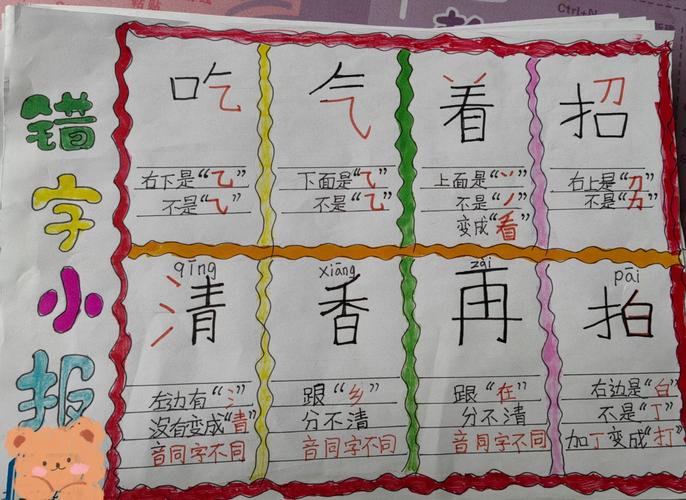 Ctrl+N
错
字
小
报
吃
右下是“乙”
不是“乁”
气
下面是“乁”
不是“乙”
着
上面是“丷”
不是“丿”
变成“看”
招
右上是“刀”
不是“力”
qīng
清
左边有“氵”
没有变成“青”
音同字不同
xiāng
香
跟“乡”
分不清
音同字不同
zài
再
跟“在”
分不清
音同字不同
pāi
拍
右边是“白”
不是“丁”
加丁变成“打”